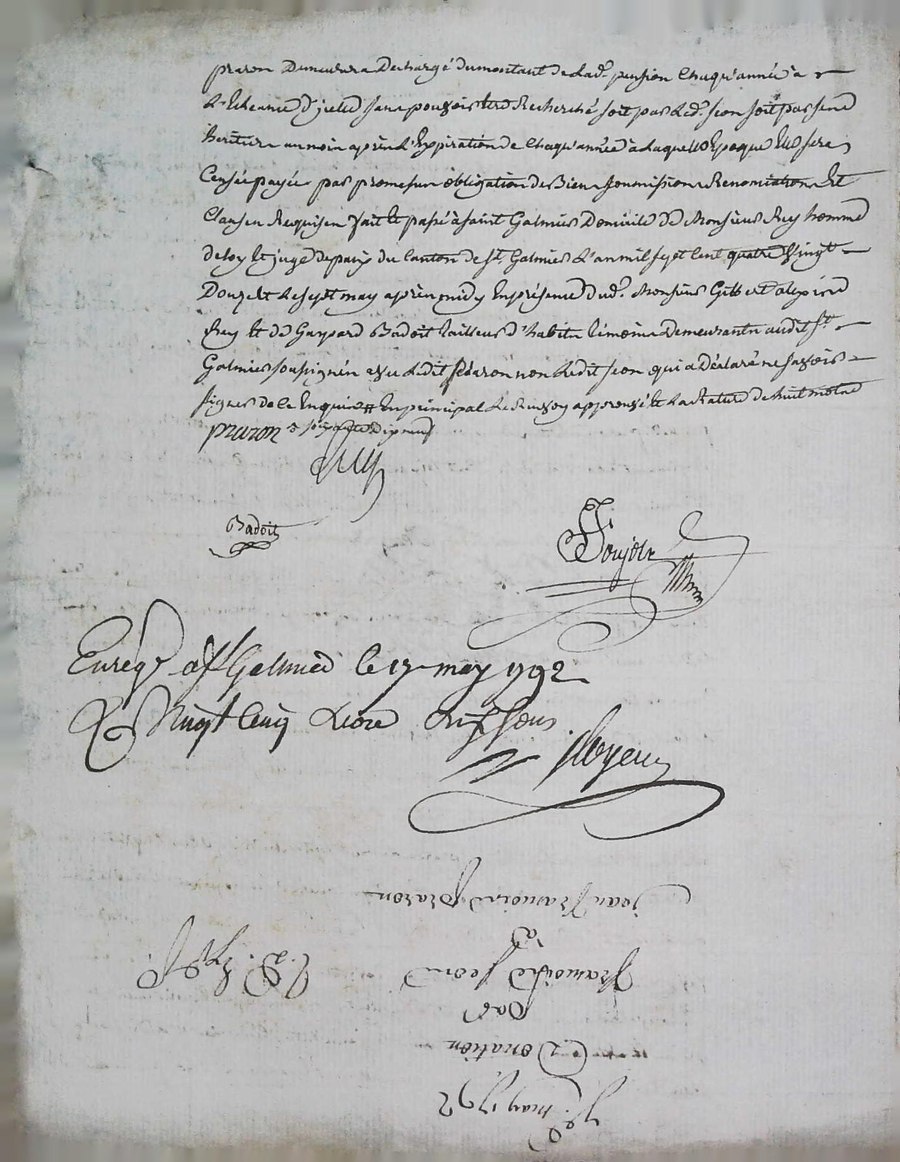 prazon Demeurera Dechargé du montant de lad.e pension Chaqu'année à
L'Echeance d'jcelle sans pouvoir Etre Recherché soit par Led. jeon soit par sens
heritiers un mois après L'Expiration de Chaqu'année à Laquelle Epoque Elle sera
Censée payée par promesses obligation de Biens soumissions Renonciations Et
Clauses Requises fait Et passé à saint Galmier Domicile de Monsieur Rey homme
de loy Et juge de paix du Canton de St. Galmier L'an mil sept Cent quatre Vingt
Douze Et Le sept may après midy En présence dud. Monsieur Gilbert
Rey Et de Gaspard Badoit tailleur d'habits témoins demeurants audit St.
Galmier soussignés avec Ledit prazon non Ledit jeon qui a Déclaré ne savoir
signer de ce Enquis Et En principal Le Renvoy approuvé Et La Rature de huit mots
prazon
Rey
Badoit
Goujon
Enregé. a St Galmier le 17 may 1792
R Vingt Cinq Livre dix sous
jean François prazon
à
François jeon
par
Donation
7e. may 1792